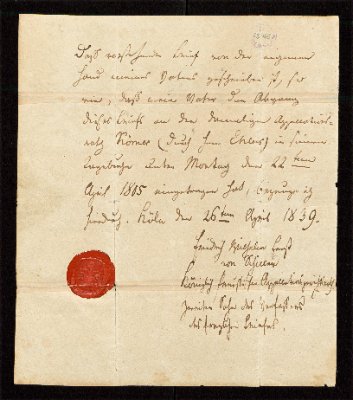 Daß vorstehender Brief von der eigenen
Hand meines Vaters geschrieben ist, so
wie, daß mein Vater den Abgang
dieses Briefs an den damaligen Appellations-
rath Körner (durch Herrn Ehlers) in seinem
Tagebuche unter Montag den 22ten
April 1805 eingetragen hat, bezeuge ich
hierdurch. Köln den 26ten April 1839.
Friedrich Wilhelm Ernst
von Schiller
Königlich Preußischer Appellationsgerichtsrath
zweiter Sohn des Verfassers
des fraglichen Briefes.